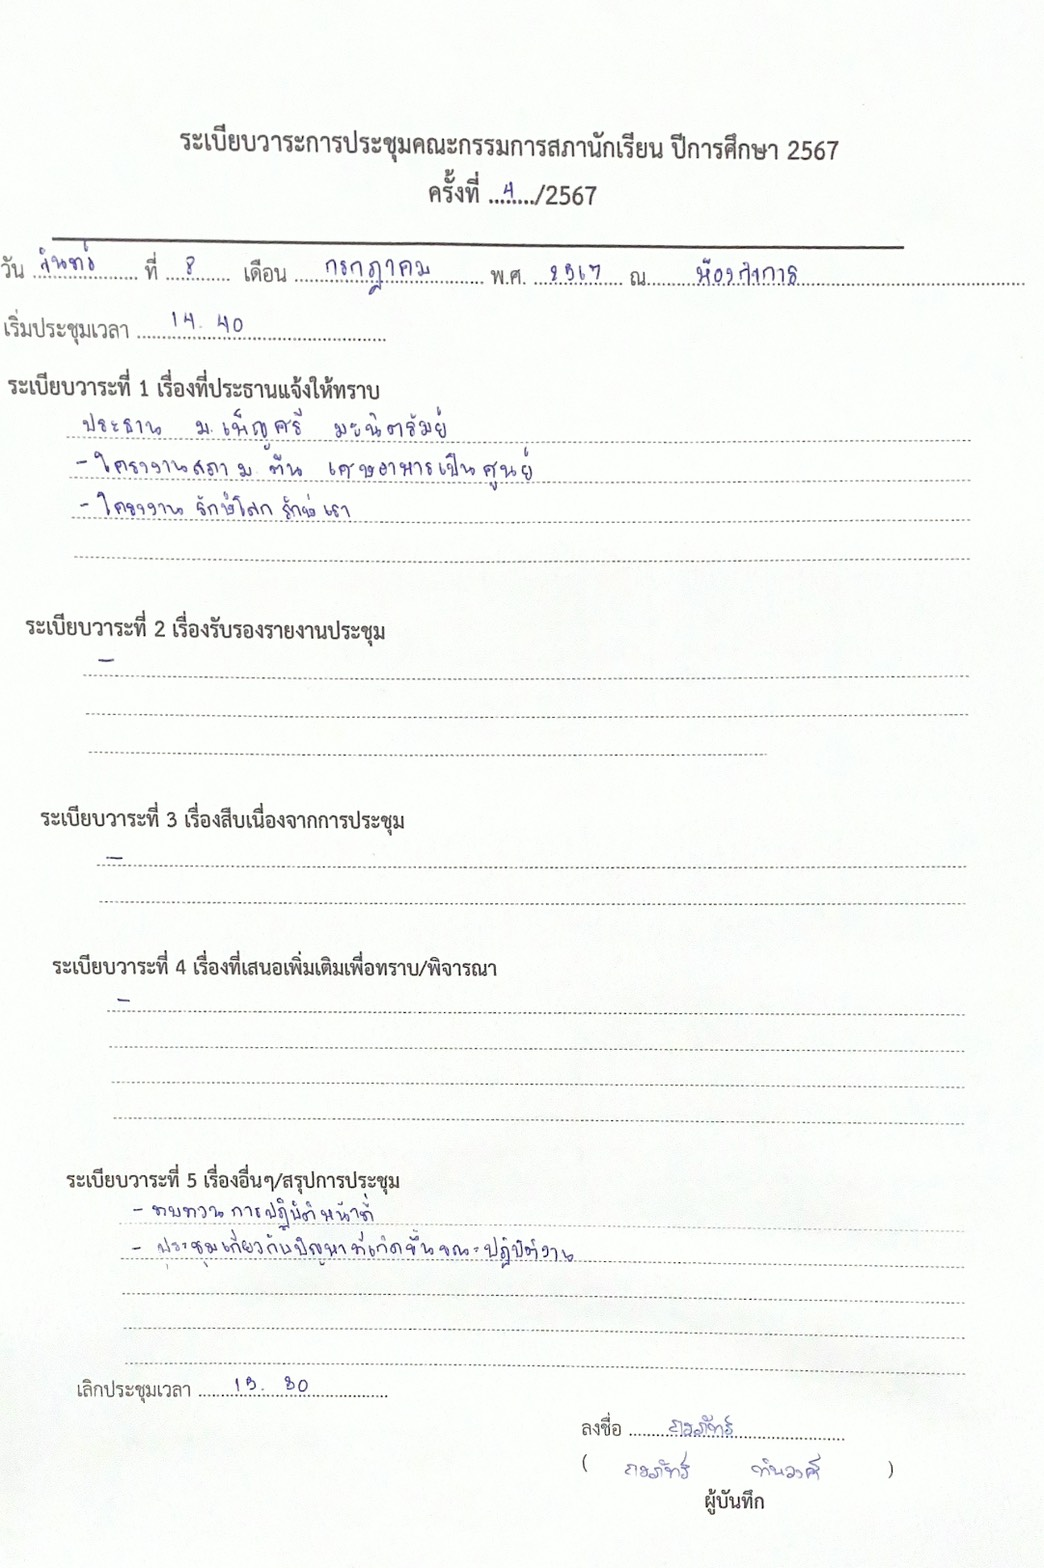 ระเบียบวาระการประชุมคณะกรรมการสภานักเรียน ปีการศึกษา 2567
ครั้งที่ ...4..../2567
วัน จันทร์ ที่ 8 เดือน กรกฎาคม พ.ศ. 2567 ณ ห้องกิจการ
เริ่มประชุมเวลา 14.40
ระเบียบวาระที่ 1 เรื่องที่ประธานแจ้งให้ทราบ
ประธาน ม.เพ็ญศรี
- โครงงานสภา ม.ต้น เศษอาหารเป็นศูนย์
- โครงงาน รักษ์โลก รักษ์เรา
ระเบียบวาระที่ 2 เรื่องรับรองรายงานประชุม
-
ระเบียบวาระที่ 3 เรื่องสืบเนื่องจากการประชุม
-
ระเบียบวาระที่ 4 เรื่องที่เสนอเพิ่มเติมเพื่อทราบ/พิจารณา
-
ระเบียบวาระที่ 5 เรื่องอื่นๆ/สรุปการประชุม
- ทบทวน การปฏิบัติหน้าที่
- ประชุมเกี่ยวกับปัญหาที่เกิดขึ้นขณะปฏิบัติงาน
เลิกประชุมเวลา 15.30
ลงชื่อ
( )
ผู้บันทึก